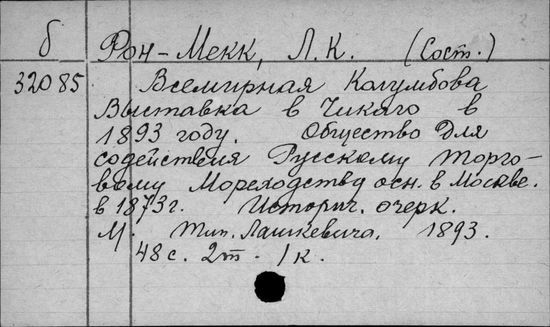 б Фон-Мекк, Л.К. (Сост.)
32085 Всемирная Колумбова
Выставка в Чикаго в
1893 году. Общество для
содействия Русскому Торго-
вому Мореходству осн. в Москве.
в 1873 г. Историч. очерк.
М. Тип. Лашкевича. 1893.
48 с. 2т. 1к.